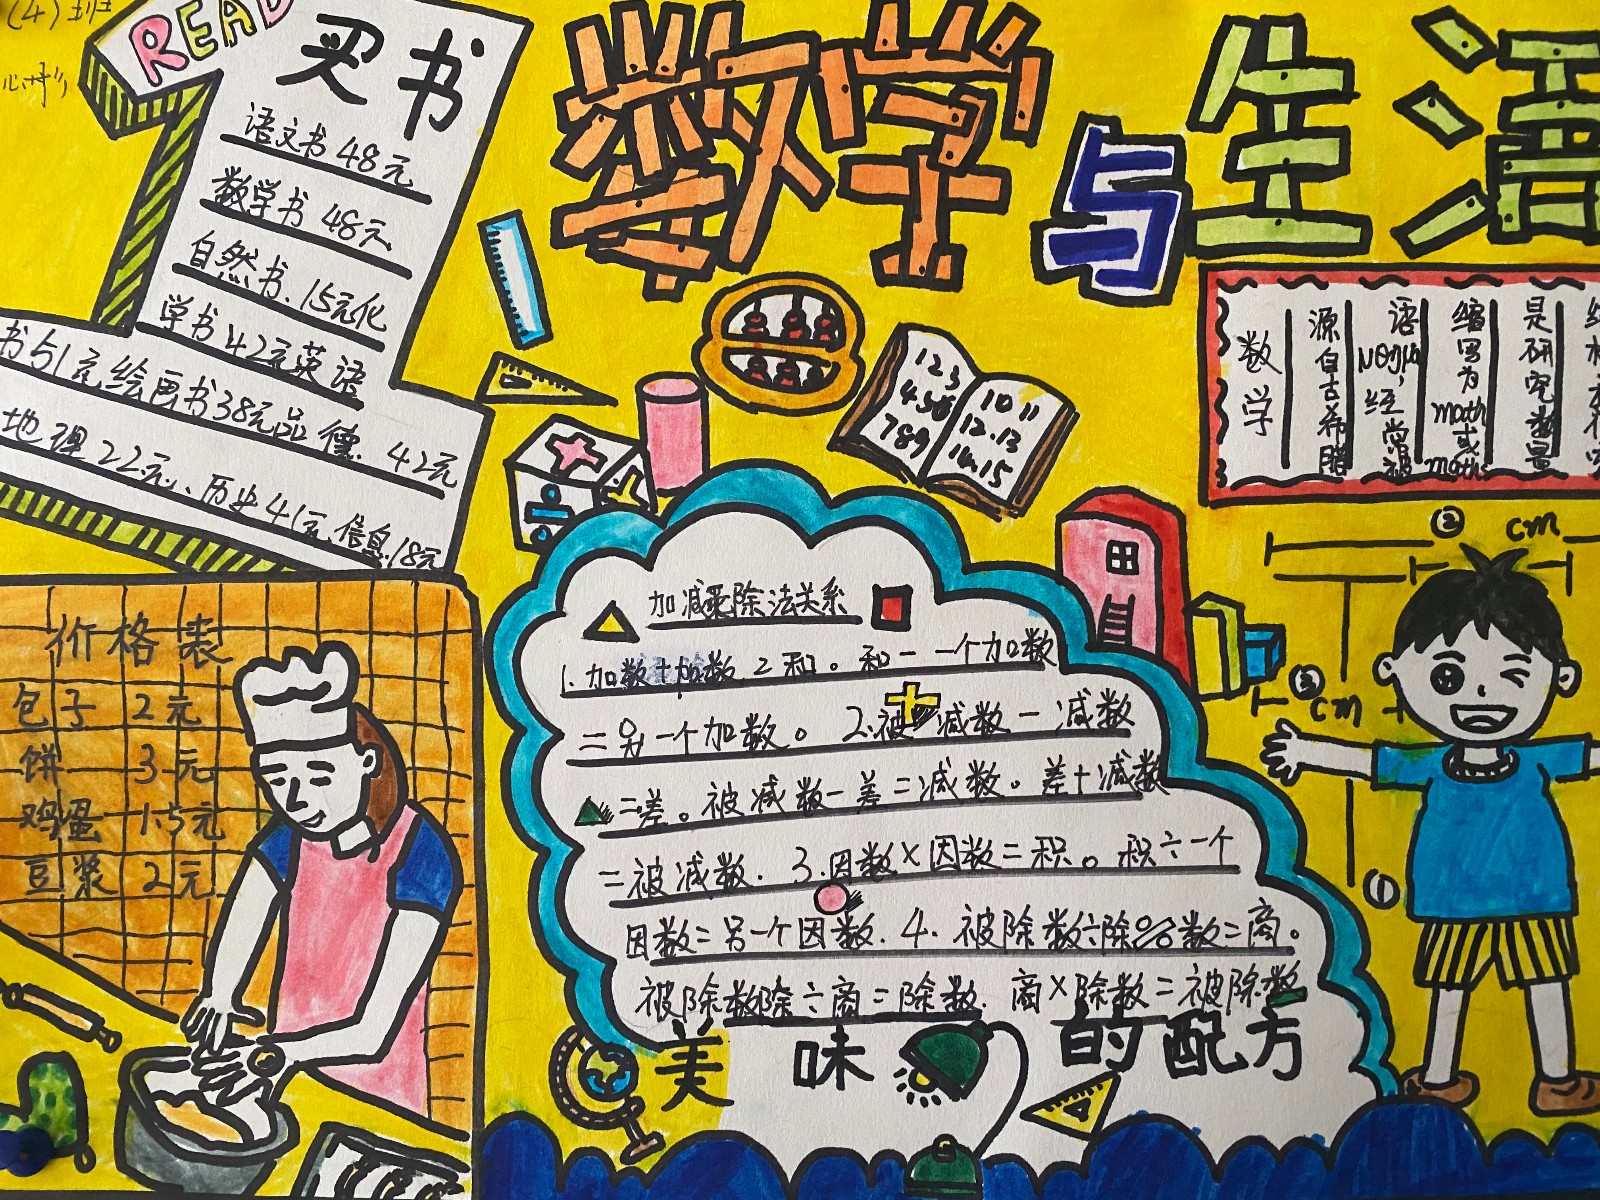 (4)班
READ
买书
语文书48元
数学书 48元
自然书.15元化
学书42元英语
书51元绘画书38元品德.42元
地理22元、历史41元信息.18元
数学与生活
123
456
789
10 11
12.13
14.15
数学
源自古希腊
语
经常被
缩写为math或maths
是研究数量
价格表
包子 2元
饼 3元
鸡蛋 1.5元
豆浆 2元
加减乘除法关系
1.加数+加数 2和。和一一个加数
=另一个加数。 2.被减数-减数
=差。被减数-差=减数。差+减数
=被减数. 3.因数×因数=积。积÷一个
因数=另一个因数. 4. 被除数÷除数=商。
被除数除÷商=除数. 商×除数=被除数
美味的配方
② cm
③ cm
①